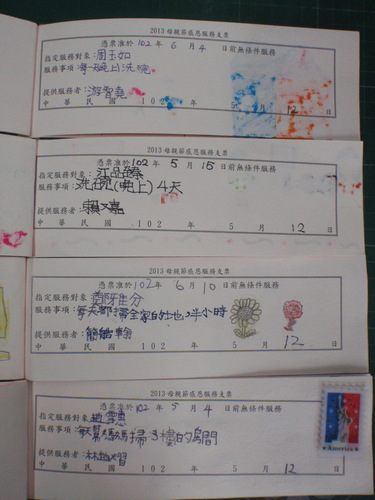 2013 母親節感恩服務支票
憑票準於102年 6 月 4 日前無條件服務
指定服務對象:周玉如
服務事項:每天晚上洗碗
提供服務者:游智堯
中 華 民 國 102 年 5 月 12 日
2013 母親節感恩服務支票
憑票準於102年 5 月 15 日前無條件服務
指定服務對象:江品臻
服務事項:洗碗(晚上)4天
提供服務者:賴文嘉
中 華 民 國 102 年 5 月 12 日
2013 母親節感恩服務支票
憑票準於102年 6 月 10 日前無條件服務
指定服務對象:
服務事項:每天都掃全家的地,半小時
提供服務者:簡
中 華 民 國 102 年 5 月 12 日
2013 母親節感恩服務支票
憑票準於102年 5 月 4 日前無條件服務
指定服務對象:
服務事項:每天幫媽媽掃3樓的房間
提供服務者:林
中 華 民 國 102 年 5 月 12 日
America